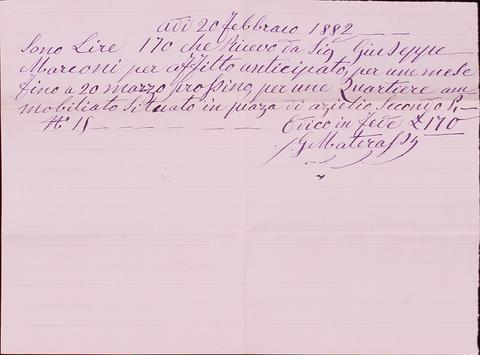 adi 20 Febbraio 1882
Sono Lire 170 che Ricevo da Sig Giuseppe
Marconi per affitto anticipato, per une mese
fino a 20 marzo prossino, per une Quartiere am
mobiliato Situato in piaza di azelio Secondo P.
N° 15
Dicc in fede £ 170
G Materassi